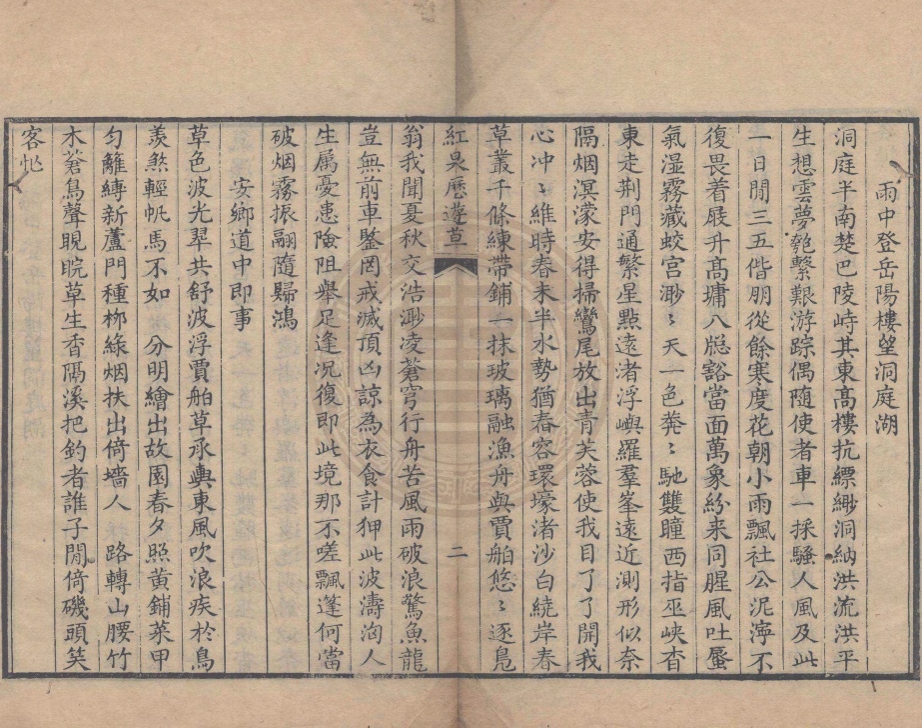 雨中登岳陽樓望洞庭湖
洞庭半南楚巴陵峙其東高樓抗縹緲洞納洪流洪平
生想雲夢匏繫艱游踪偶随使者車一採騷人風及此
一日閒三五偕朋從餘寒度花朝小雨飄社公泥濘不
復畏着屐升高墉八牕豁當面萬象紛来同腥風吐蜃
氣湿霧藏蛟宫渺〻天一色莽〻馳雙瞳西指巫峽杳
東走荆門通繁星點遠渚浮嶼羅羣峯遠近測形似奈
隔烟溟濛安得掃鸞尾放出青芙蓉使我目了了開我
心冲〻維時春未半水勢猶舂容環壕渚沙白繞岸春
草叢千條練帶鋪一抹玻璃融漁舟與賈舶悠〻逐鳧
紅泉歷遊草 二
翁我聞夏秋交浩渺凌蒼穹行舟苦風雨破浪驚魚龍
豈無前車鑒罔戒滅頂凶諒為衣食計狎此波濤洶人
生属憂患險阻舉足逢况復即此境那不嗟飄蓬何當
破烟霧振翮隨歸鴻
安鄉道中即事
草色波光翠共舒波浮賈舶草承輿東風吹浪疾於鳥
羨煞輕帆馬不如 分明繪出故園春夕照黄鋪菜甲
匀籬縳新蘆門種栁緑烟扶出倚墻人 路轉山腰竹
木蒼鳥聲睍睆草生香隔溪把釣者誰子閒倚磯頭笑
客忙